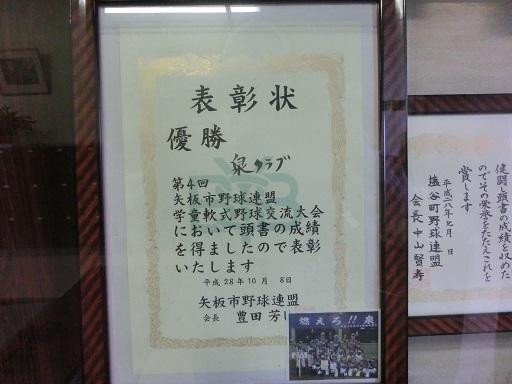 表彰状
優勝
泉クラブ
第4回
矢板市野球連盟
学童軟式野球交流大会
において頭書の成績
を得ましたので表彰
いたします
平成28年10月 8日
矢板市野球連盟
会長 豊田芳
燃えろ!!泉
健闘し頭書の成績を収めた
のでその栄誉をたたえこれを
賞します
平成二八年七月 日
塩谷町野球連盟
会長 中山賢寿